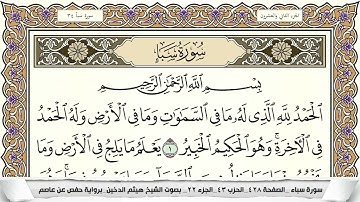 الجزء الثاني والعشرون
سورة سبأ ٣٤
سُورَةُ سَبَإٍ
بِسْمِ ٱللَّهِ ٱلرَّحْمَٰنِ ٱلرَّحِيمِ
ٱلْحَمْدُ لِلَّهِ ٱلَّذِى لَهُۥ مَا فِى ٱلسَّمَٰوَٰتِ وَمَا فِى ٱلْأَرْضِ وَلَهُ ٱلْحَمْدُ
فِى ٱلْءَاخِرَةِ ۚ وَهُوَ ٱلْحَكِيمُ ٱلْخَبِيرُ ١ يَعْلَمُ مَا يَلِجُ فِى ٱلْأَرْضِ وَمَا
سورة سباء _الصفحة ٤٢٨_ الحزب ٤٣_ الجزء ٢٢_ بصوت الشيخ هيثم الدخين_ برواية حفص عن عاصم